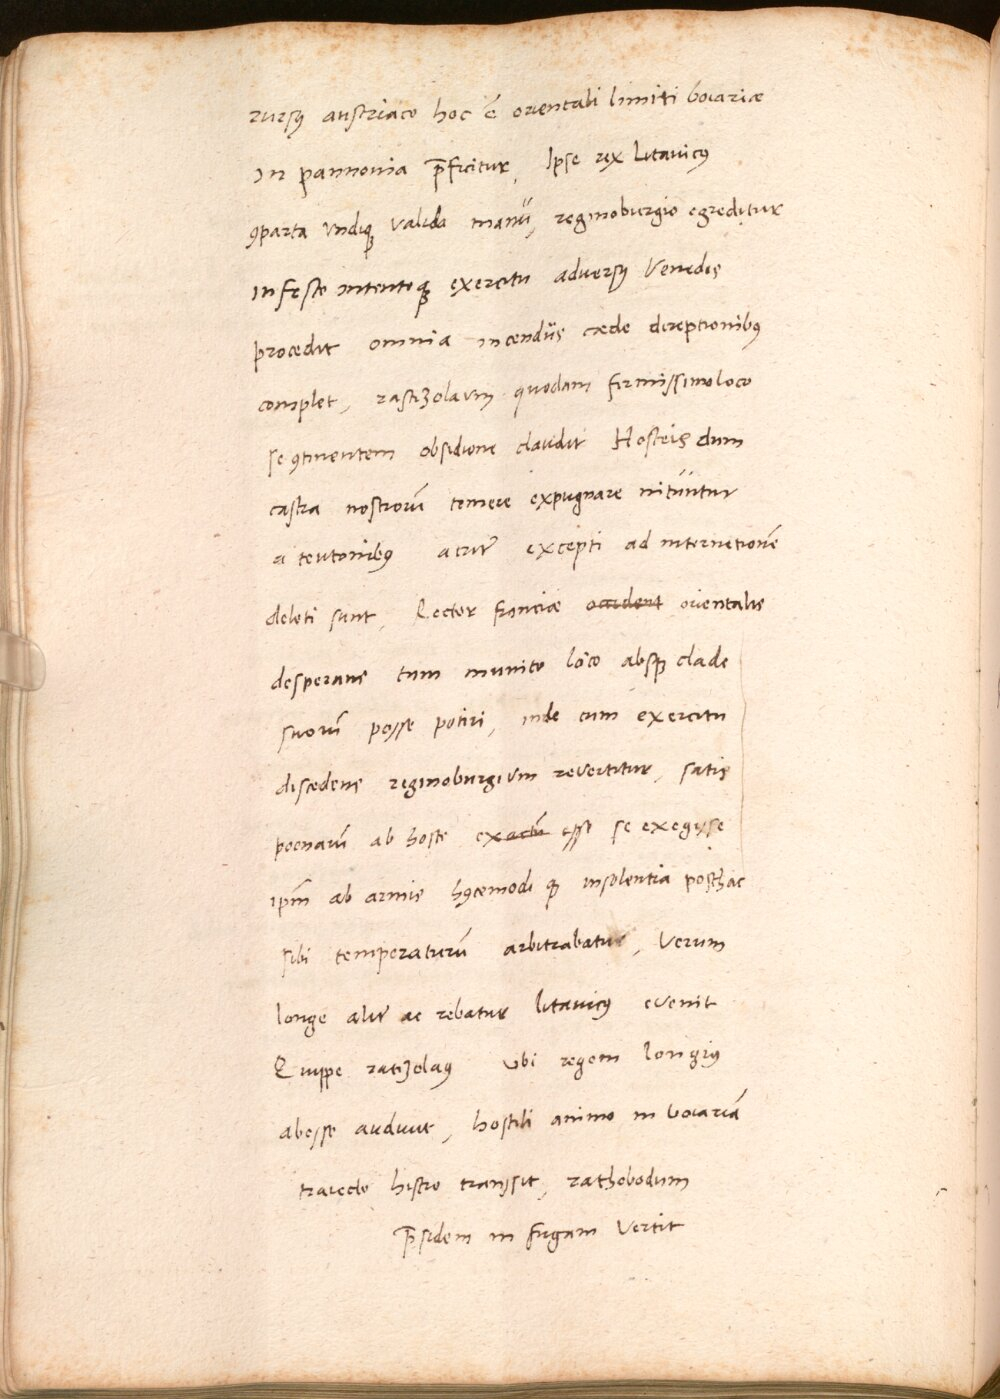 rursꝰ austriaco hoc ē orientali limiti boiariæ
in pannonia p̄ficitur, Ipse rex litauicꝰ
ꝯparta undiqꝫ valida manu, reginoburgio egreditur
infesto intentoqꝫ exercitu adversꝰ Venedis
procedit omnia incendiis cæde direptionibꝰ
complet, rastiʒolaum quodam firmissimo loco
se ꝯtinentem obsidione claudit Hosteis dum
castra nostrorū temere expugnare nituntur
a teutonibꝰ acrit᷑ excepti ad internetionē
deleti sunt, Rector franciæ occident orientalis
desperans tum munito loco absqꝫ clade
suorū posse potiri, inde cum exercitu
discedens reginoburgium revertitur, satis
poenarū ab hoste exactū esse se exegisse
ipm̄ ab armis hꝰcemodi qꝫ insolentia posthac
sibi temperaturū arbitrabatur, Verum
longe alit᷑ ac rebatur litauicꝰ evenit
Quippe ratiʒolaꝰ ubi regem longiꝰ
abesse audivit, hostili animo in boiariā
traiecto histro transit, rathobodum
p̄sidem in fugam vertit